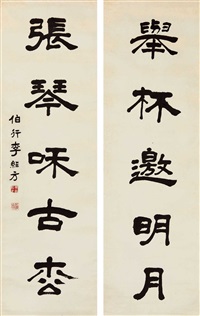 舉杯邀明月
張琴咊古枩
伯行李經方